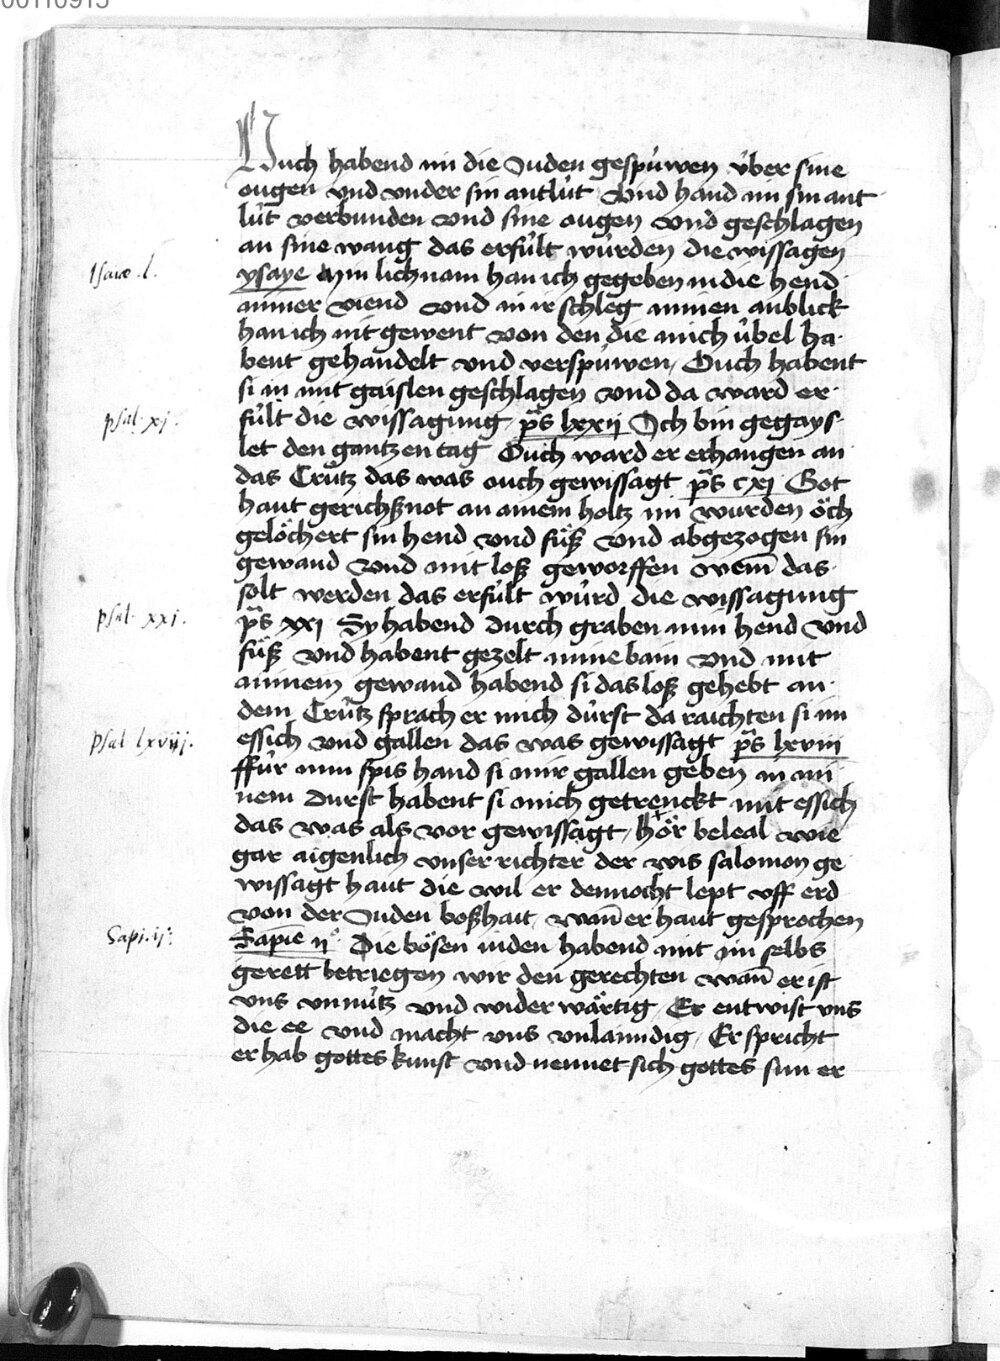 00110913
Ouch habend im die Juden gespüwen über sine
ougen vnd vnder sin antlüt Vnd hand im sin ant
lüt verbunden vnd sine ougen vnd geschlagen
an sine wang das erfült würden die wissagen
Isaie .l.
ysaye Min lichnam han ich gegeben in die hend
miner viend vnd in ir schleg minen anblick
han ich nit gewent von den die mich übel ha
bent gehandelt vnd verspüwen / Ouch habent
si in mit gaislen geschlagen vnd da ward er
psal. xj.
fült die wissagung / ps lxxij Ich bin gegays
let den gantzen tag Ouch ward er erhangen an
das Crütz das was ouch gewissagt ps cxj Got
haut gerichßnot an ainem holtz im wurden öch
gelöchert sin hend vnd füß vnd abgezogen sin
gewand vnd mit loß geworffen wem das
solt werden das erfült würd die wissagung
psal. xxj.
ps xxj Sy habend durch graben min hend vnd
füß vnd habent gezelt mine bain vnd mit
minem gewand habend si das loß gehebt an
dem Crütz sprach er mich dürst da raichten si im
psal lxviij.
essich vnd gallen das was gewissagt ps lxviij
ffür min spis hand si mir gallen geben in mi
nem durst habent si mich getrenckt mit essich
das was als vor gewissagt / hör beleal wie
gar aigenlich vnser richter der wis salomon ge
wissagt haut die wil er dennocht lept vff erd
von der Juden boßhait / wañ er haut gesprochen
Sapi. ij.
Sapie ij° Die bösen juden habend mit jm selbs
gerett betriegen wir den gerechten wañ er ist
vns vnnütz vnd wider wärtig / Er entwist vns
die ee vnd macht vns vnlaimdig / Er spricht
er hab gottes kunst vnd nennet sich gottes sun er